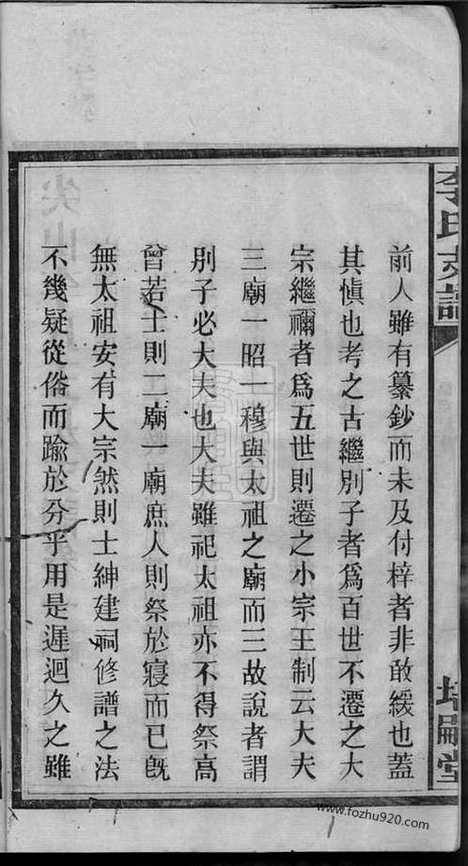 李氏支譜
前人雖有纂鈔而未及付梓者非敢緩也蓋
其慎也考之古繼別子者爲百世不遷之大
宗繼禰者爲五世則遷之小宗王制云大夫
三廟一昭一穆與太祖之廟而三故說者謂
別子必大夫也大夫雖祀太祖亦不得祭高
曾若士則二廟一廟庶人則祭於寢而已旣
無太祖安有大宗然則士紳建祠修譜之法
不幾疑從俗而踰於分乎用是遲迴久之雖
嗣堂
www.fozhu920.com